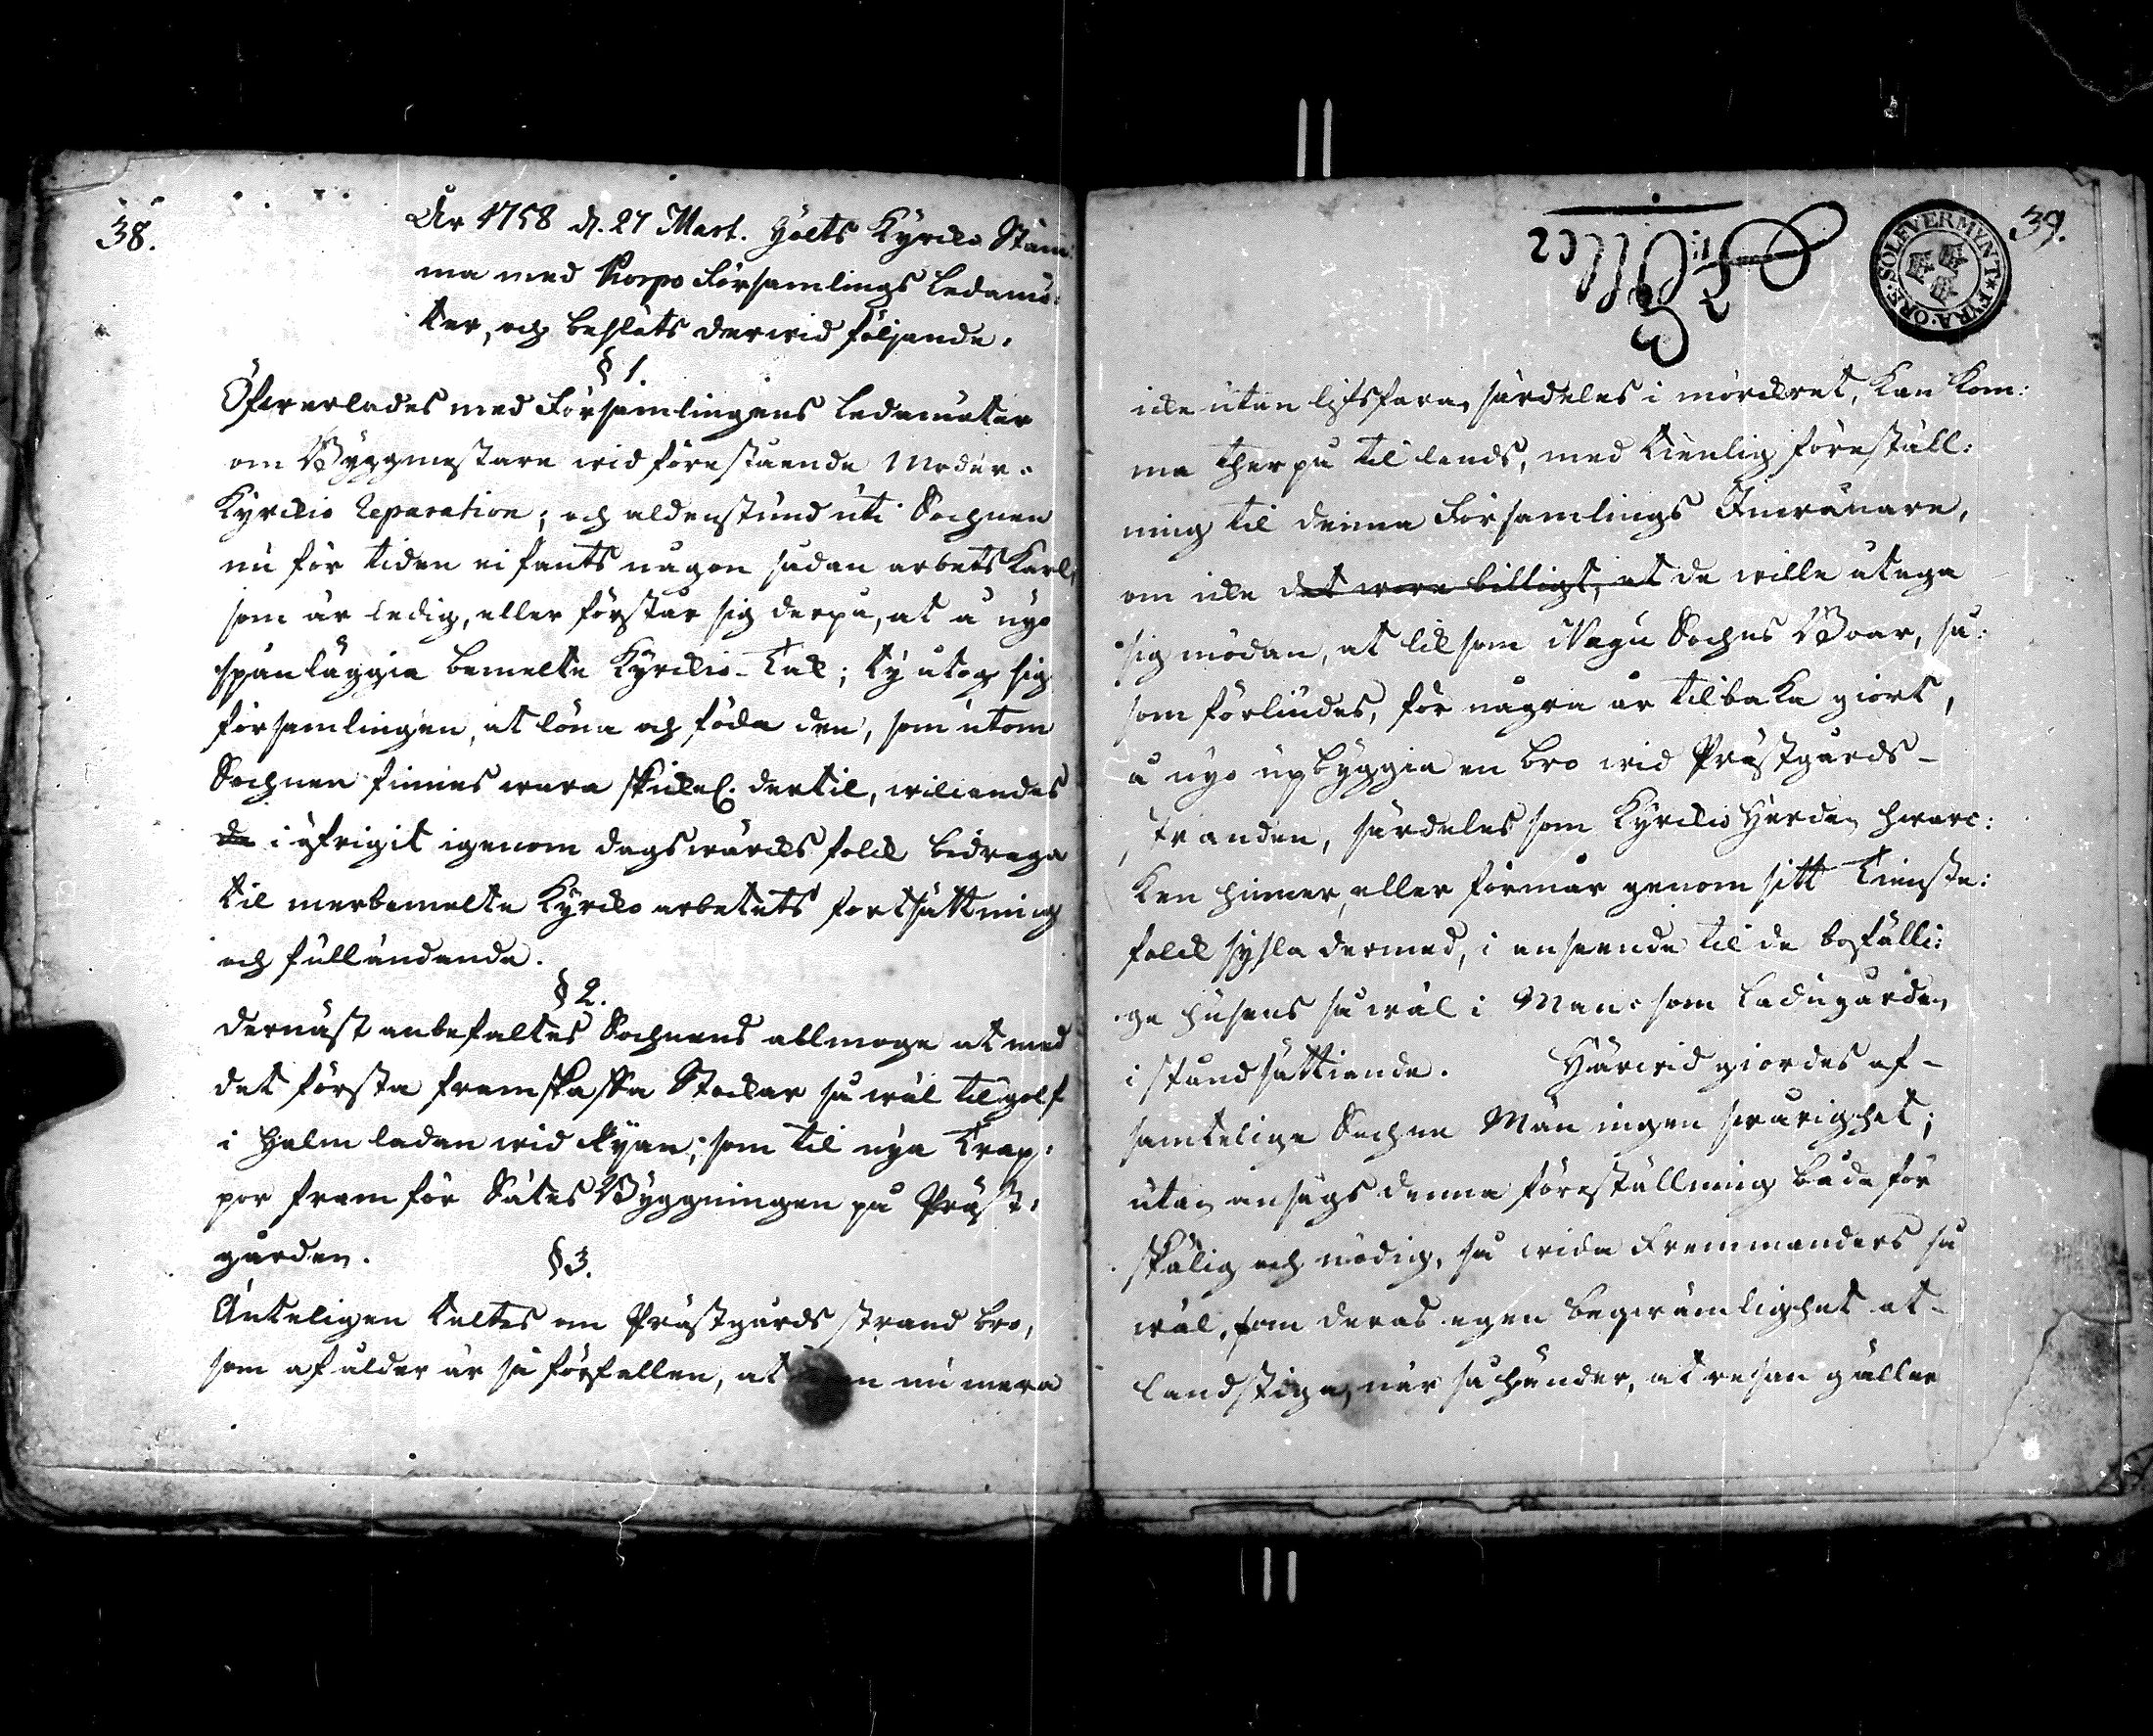 38.
År 1758 d. 27 Mart. hölts Kyrcko Stäm:
ma med Korpo Församlings Ledamö:
ter, och beslöts derwid följande.
§ 1.
Öfwerlades med Församlingens Ledamöter
om Byggmestare wid förestående Moder-
Kyrckio Reparation; och aldenstund uti Sochnen
nu för tiden ei fants någon sådan arbets Karl,
som är ledig, eller förstår sig derpå, at å nyo
spånläggia bemelte Kyrckio-Tak; ty åtog sig
församlingen, at löna och föda den, som utom
Sochnen finnes wara skickel. dertil, williandes
de i öfrigit igenom dagswärcks folck bidraga
til merbemelte Kyrcko arbetets fortsättning
och fulländande.
§ 2.
Dernäst anbefaltes Sochnens allmoge at med
det första framskaffa Stockar så wäl til golf
i Halm ladan wid Ryan, som til nya Trap:
por fram för Sätes Byggningen på Präst:
gården.
§ 3.
Änteligen taltes om Prästgårds strand bro,
som af ålder är så förfallen, at n nu mera
39.
SOLFVERMYNT * FYRA ÖRE
icke utan lifsfara, särdeles i mörckret, kan kom:
ma ther på til lands, med tienlig föreställ:
ning til denna Församlings Inwånare,
om icke det wore billigt, at de wille åtaga
sig mödan, at lik som Nagu Sochns Boar, så:
som förliudes, för några år tilbaka giort,
å nyo upbyggia en bro wid Prästgårds-
stranden, särdeles som Kyrckio Herden hwarc:
ken hinner, eller förmår genom sitt Tienste:
folck sysla dermed, i anseende til de bofälli:
ge husens så wäl i Man- som ladugården
i ståndsättiande. Härwid giordes af-
samtelige Sochne Män ingen swårighet;
utan ansågs denna föreställning både för
skälig och nödig, så wida Fremmanders så
wäl, som deras egen beqwämlighet at-
landstiga, när så händer, at resan gäller